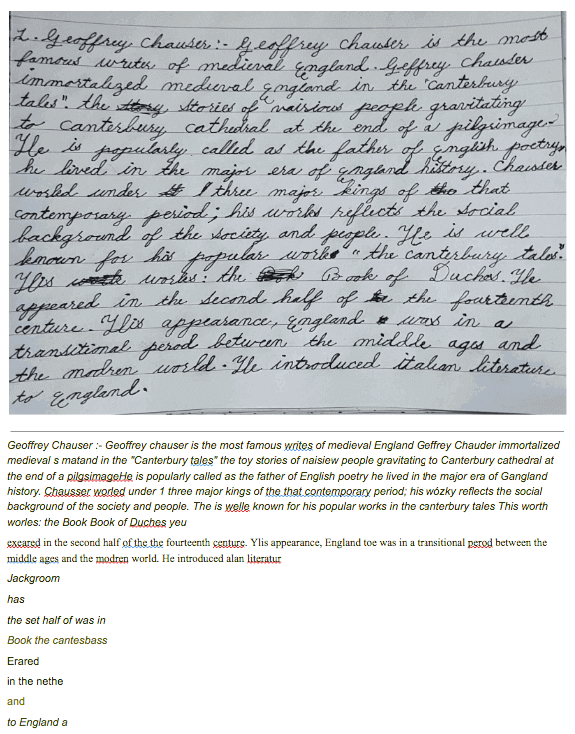 1. Geoffrey Chauser:- Geoffrey chauser is the most
famous writer of medieval England. Geffrey Chauser
immortalized medieval England in the "Canterbury
tales". the stories of vairious people gravitating
to Canterbury cathedral at the end of a pilgrimage.
He is popularly called as the father of English poetry,
he lived in the major era of England history. Chausser
worled under three major kings of that
contemporary period; his works reflects the social
background of the society and people. He is well
known for his popular works "the canterbury tales".
His works: the Book of Duches. He
appeared in the second half of the fourteenth
centure. His appearance, England was in a
transitional perod between the middle ages and
the modren world. He introduced italian literature
to England.
Geoffrey Chauser :- Geoffrey chauser is the most famous writes of medieval England Geffrey Chauder immortalized
medieval s matand in the "Canterbury tales" the toy stories of naisiew people gravitating to Canterbury cathedral at
the end of a pilgsimageHe is popularly called as the father of English poetry he lived in the major era of Gangland
history. Chausser worled under 1 three major kings of the that contemporary period; his wózky reflects the social
background of the society and people. The is welle known for his popular works in the canterbury tales This worth
worles: the Book Book of Duches yeu
exeared in the second half of the the fourteenth centure. Ylis appearance, England toe was in a transitional perod between the
middle ages and the modren world. He introduced alan literatur
Jackgroom
has
the set half of was in
Book the cantesbass
Erared
in the nethe
and
to England a